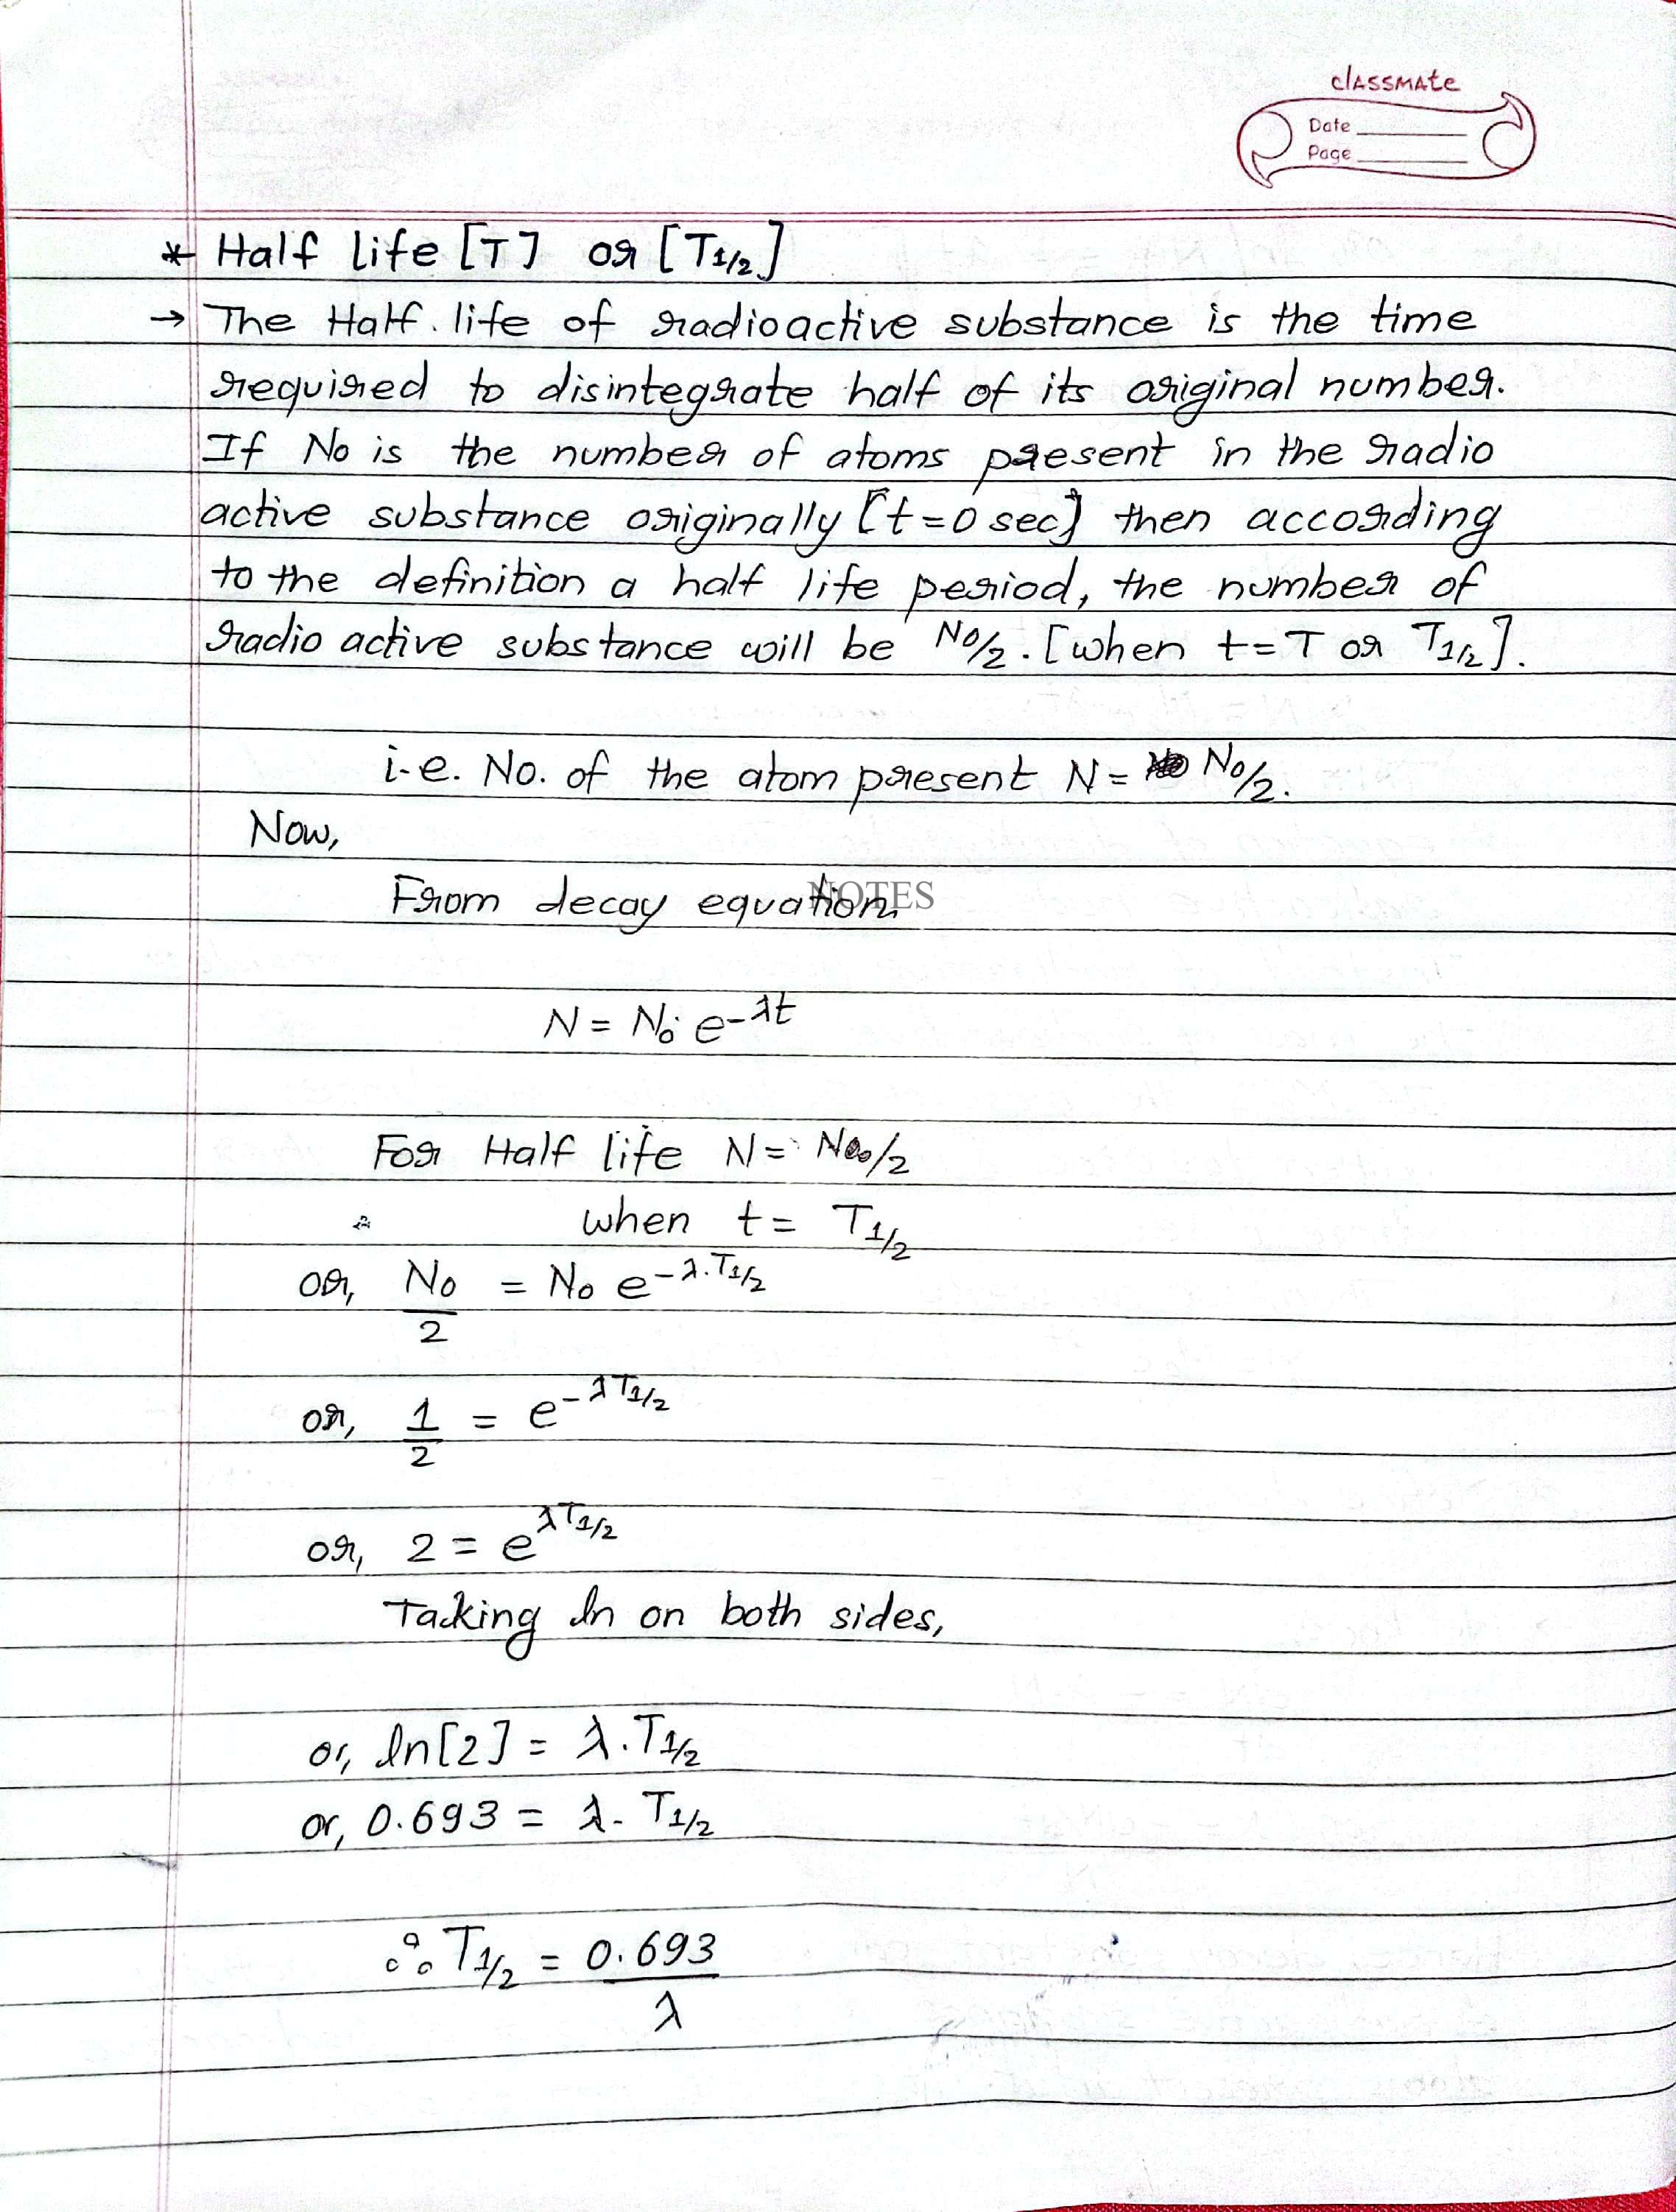 classmate
Date
Page
* Half life [T] or [T1/2]
→ The Half life of radioactive substance is the time
required to disintegrate half of its original number.
If No is the number of atoms present in the radio
active substance originally [t=0 sec] then according
to the definition a half life period, the number of
radio active substance will be No/2. [when t=T or T1/2].
i.e. No. of the atom present N= No/2.
Now,
From decay equation
NOTES
N = No e^-λt
For Half life N = No/2
when t = T1/2
or, No/2 = No e^-λ.T1/2
or, 1/2 = e^-λT1/2
or, 2 = e^λT1/2
Taking ln on both sides,
or, ln[2] = λ.T1/2
or, 0.693 = λ. T1/2
∴ T1/2 = 0.693/λ